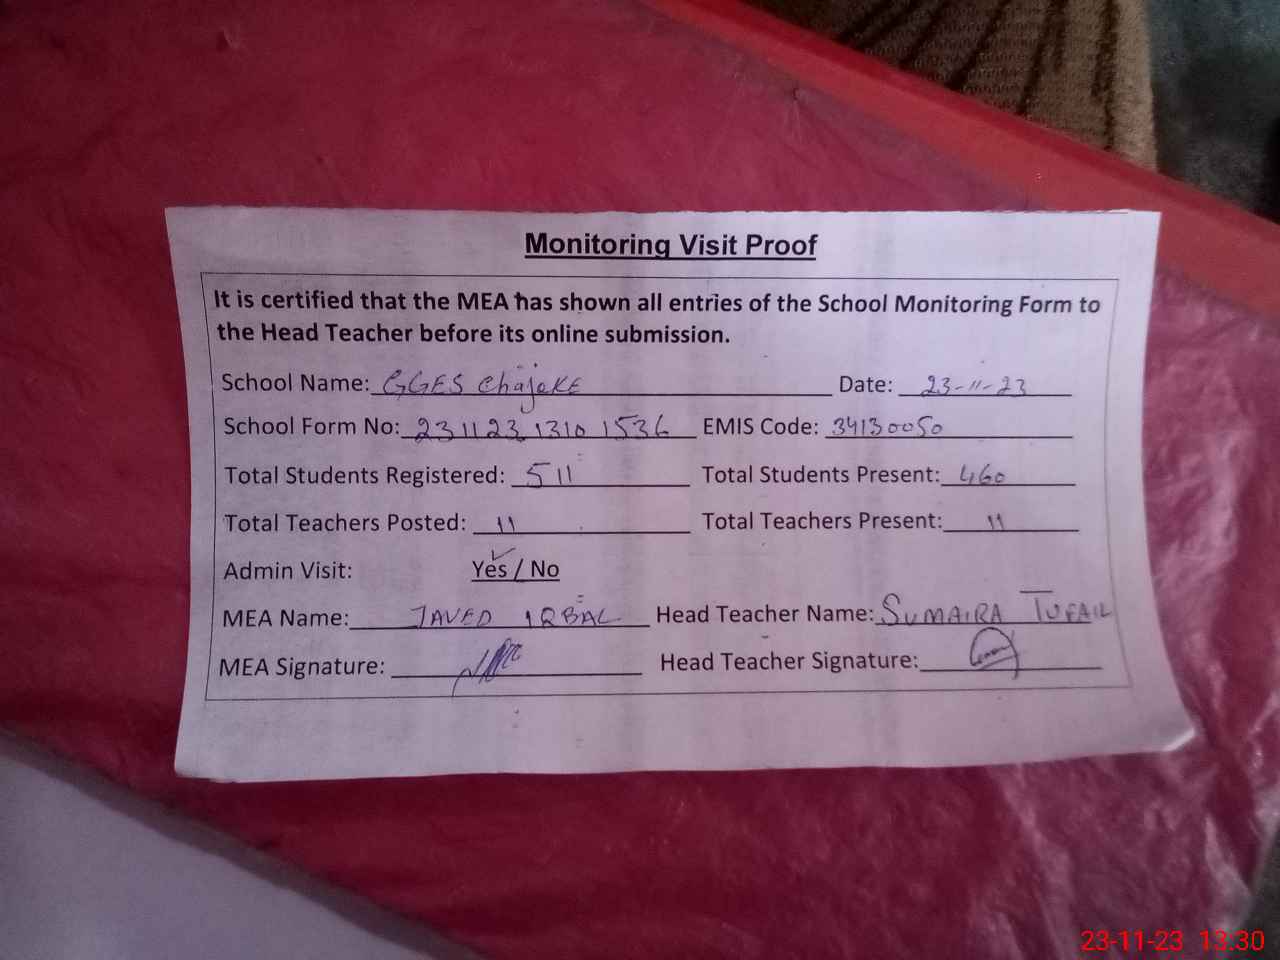 Monitoring Visit Proof
It is certified that the MEA has shown all entries of the School Monitoring Form to
the Head Teacher before its online submission.
School Name: GGES Chajoke Date: 23-11-23
School Form No: 231123 1310 1536 EMIS Code: 34130050
Total Students Registered: 511 Total Students Present: 460
Total Teachers Posted: 11 Total Teachers Present: 11
Admin Visit: Yes / No
MEA Name: JAVED IQBAL Head Teacher Name: SUMAIRA TUFAIL
MEA Signature: Head Teacher Signature:
23-11-23 13:30